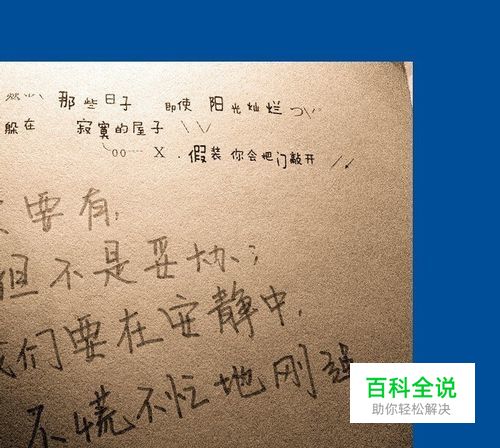 那些日子 即使 阳光灿烂
躲在 寂寞的屋子 \ \
oo X . 假装 你会把门敲开
要有,
但不是妥协;
我们要在安静中,
不慌不忙地刚强
百科全说
助你轻松解决